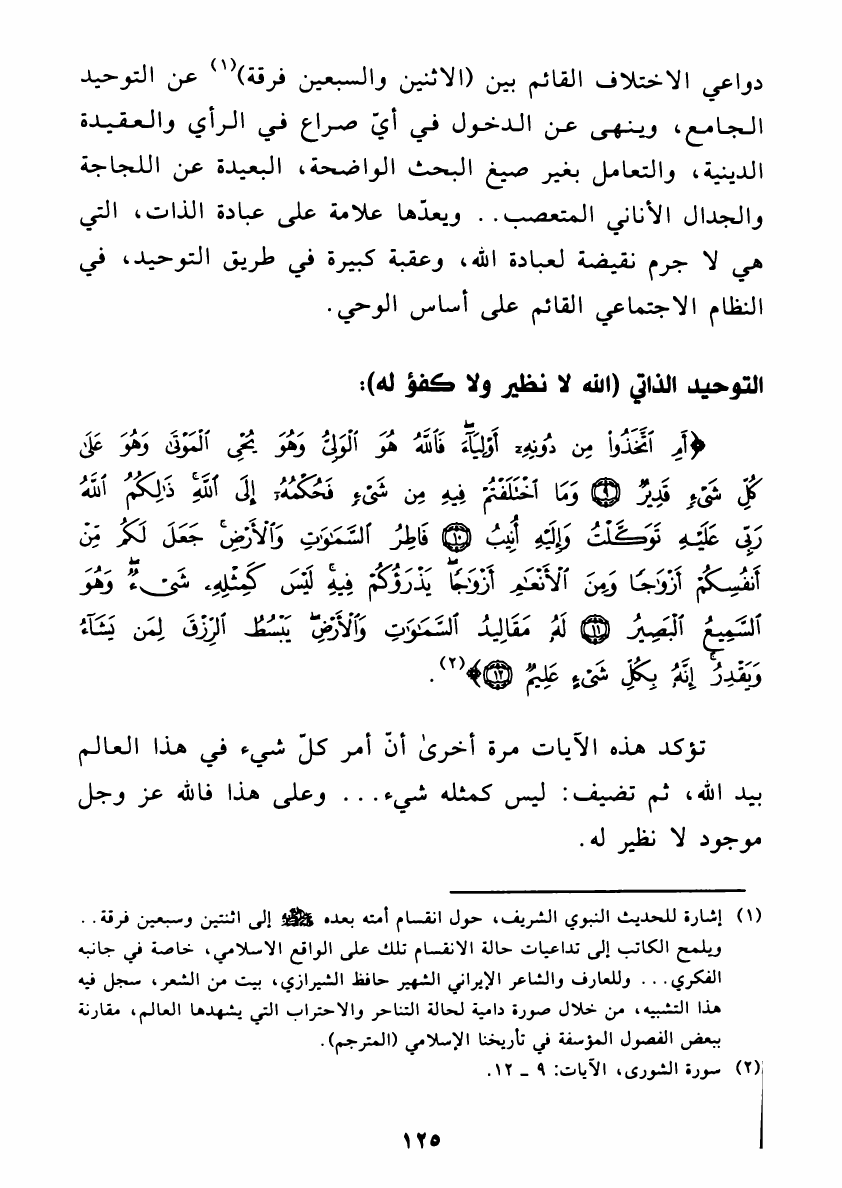 دواعي الاختلاف القائم بين (الاثنين والسبعين فرقة)(١) عن التوحيد
الجامع، وينهى عن الدخول في أيّ صراع في الرأي والعقيدة
الدينية، والتعامل بغير صيغ البحث الواضحة، البعيدة عن اللجاجة
والجدال الأناني المتعصب.. ويعدّها علامة على عبادة الذات، التي
هي لا جرم نقيضة لعبادة الله، وعقبة كبيرة في طريق التوحيد، في
النظام الاجتماعي القائم على أساس الوحي.
التوحيد الذاتي (الله لا نظير ولا كفؤ له):
﴿أَمِ ٱتَّخَذُوا۟ مِن دُونِهِۦٓ أَوْلِيَآءَ ۖ فَٱللَّهُ هُوَ ٱلْوَلِىُّ وَهُوَ يُحْىِ ٱلْمَوْتَىٰ وَهُوَ عَلَىٰ
كُلِّ شَىْءٍ قَدِيرٌ ۝٩ وَمَا ٱخْتَلَفْتُمْ فِيهِ مِن شَىْءٍ فَحُكْمُهُۥٓ إِلَى ٱللَّهِ ۚ ذَٰلِكُمُ ٱللَّهُ
رَبِّى عَلَيْهِ تَوَكَّلْتُ وَإِلَيْهِ أُنِيبُ ۝١٠ فَاطِرُ ٱلسَّمَٰوَٰتِ وَٱلْأَرْضِ ۚ جَعَلَ لَكُم مِّنْ
أَنفُسِكُمْ أَزْوَٰجًا وَمِنَ ٱلْأَنْعَٰمِ أَزْوَٰجًا ۖ يَذْرَؤُكُمْ فِيهِ ۚ لَيْسَ كَمِثْلِهِۦ شَىْءٌ ۖ وَهُوَ
ٱلسَّمِيعُ ٱلْبَصِيرُ ۝١١ لَهُۥ مَقَالِيدُ ٱلسَّمَٰوَٰتِ وَٱلْأَرْضِ ۖ يَبْسُطُ ٱلرِّزْقَ لِمَن يَشَآءُ
وَيَقْدِرُ ۚ إِنَّهُۥ بِكُلِّ شَىْءٍ عَلِيمٌ ۝١٢﴾(٢).
تؤكد هذه الآيات مرة أخرىٰ أنّ أمر كلّ شيء في هذا العالم
بيد الله، ثم تضيف: ليس كمثله شيء... وعلى هذا فالله عز وجل
موجود لا نظير له.
(١) إشارة للحديث النبوي الشريف، حول انقسام أمته بعده ﷺ إلى اثنتين وسبعين فرقة..
ويلمح الكاتب إلى تداعيات حالة الانقسام تلك على الواقع الاسلامي، خاصة في جانبه
الفكري... وللعارف والشاعر الإيراني الشهير حافظ الشيرازي، بيت من الشعر، سجل فيه
هذا التشبيه، من خلال صورة دامية لحالة التناحر والاحتراب التي يشهدها العالم، مقارنة
ببعض الفصول المؤسفة في تأريخنا الإسلامي (المترجم).
(٢) سورة الشورى، الآيات: ٩ - ١٢.
١٢٥